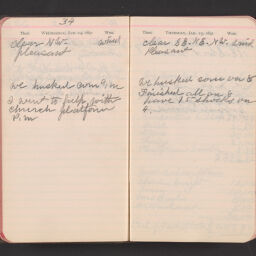 34
Ther. Wednesday, Jan. 14, 1891 Wea.
clear N.W. wind
pleasant
We husked corn P.m
I went to help with
church platform
P.m
Ther. Thursday, Jan. 15, 1891 Wea.
clear S.E. N.E. N.W. wind
pleasant
We husked corn on 8
Finished all on 8
have 15 shocks on
4.